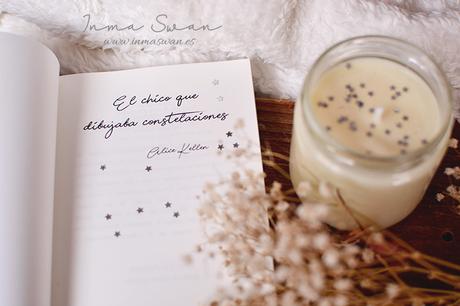 Inma Swan
www.inmaswan.es
El chico que
dibujaba constelaciones
Alice Kellen